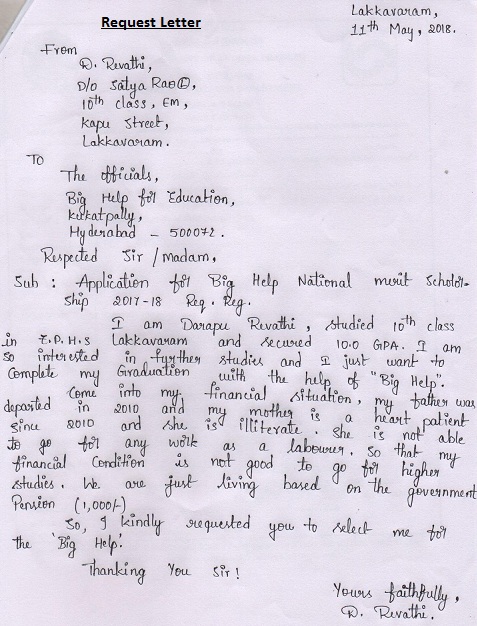 Request Letter
Lakkavaram,
11th May, 2018.
From
D. Revathi,
D/o Satya Rao (L),
10th class, EM,
Kapu Street,
Lakkavaram.
To
The officials,
Big Help for Education,
Kukatpally,
Hyderabad – 500072.
Respected Sir / madam,
Sub : Application for Big Help National merit Scholor-
ship 2017-18 Req. Reg.
I am Darapu Revathi, studied 10th class
in Z.P.H.S Lakkavaram and secured 10.0 GPA. I am
so interested in further studies and I just want to
complete my Graduation with the help of "Big Help".
Come into my financial situation, my father was
departed in 2010 and my mother is a heart patient
since 2010 and she is illiterate. She is not able
to go for any work as a labourer. So that my
financial Condition is not good to go for higher
studies. We are just living based on the government
Pension (1,000/-)
So, I kindly requested you to select me for
the 'Big Help'.
Thanking You Sir!
Yours faithfully,
D. Revathi.